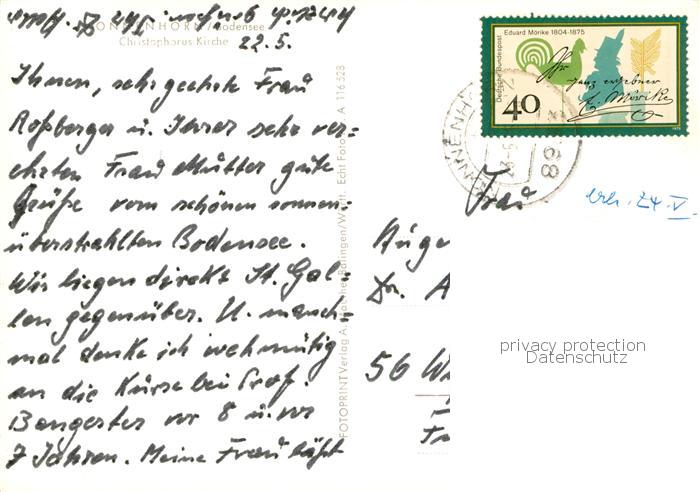 NONNENHORN/Bodensee
Christophorus Kirche
22.5.
Ihnen, sehr geehrte Frau
Roßberger u. Ihrer sehr ver-
ehrten Frau Mutter gute
Grüße vom schönen sonnen-
überstrahlten Bodensee.
Wir liegen direkt St. Gal-
len gegenüber. U. manch-
mal denke ich wehmütig
an die Kurse bei Prof.
Bangerter vor 8 u. vor
7 Jahren. Meine Frau läßt
FOTOPRINT Verlag A.
Echt Foto
A 116 528
Deutsche Bundespost
Eduard Mörike 1804-1875
ganz ergebner
E. Mörike
40
Frau
24. V.
Auge
Dr. A
56 W
privacy protection
Datenschutz